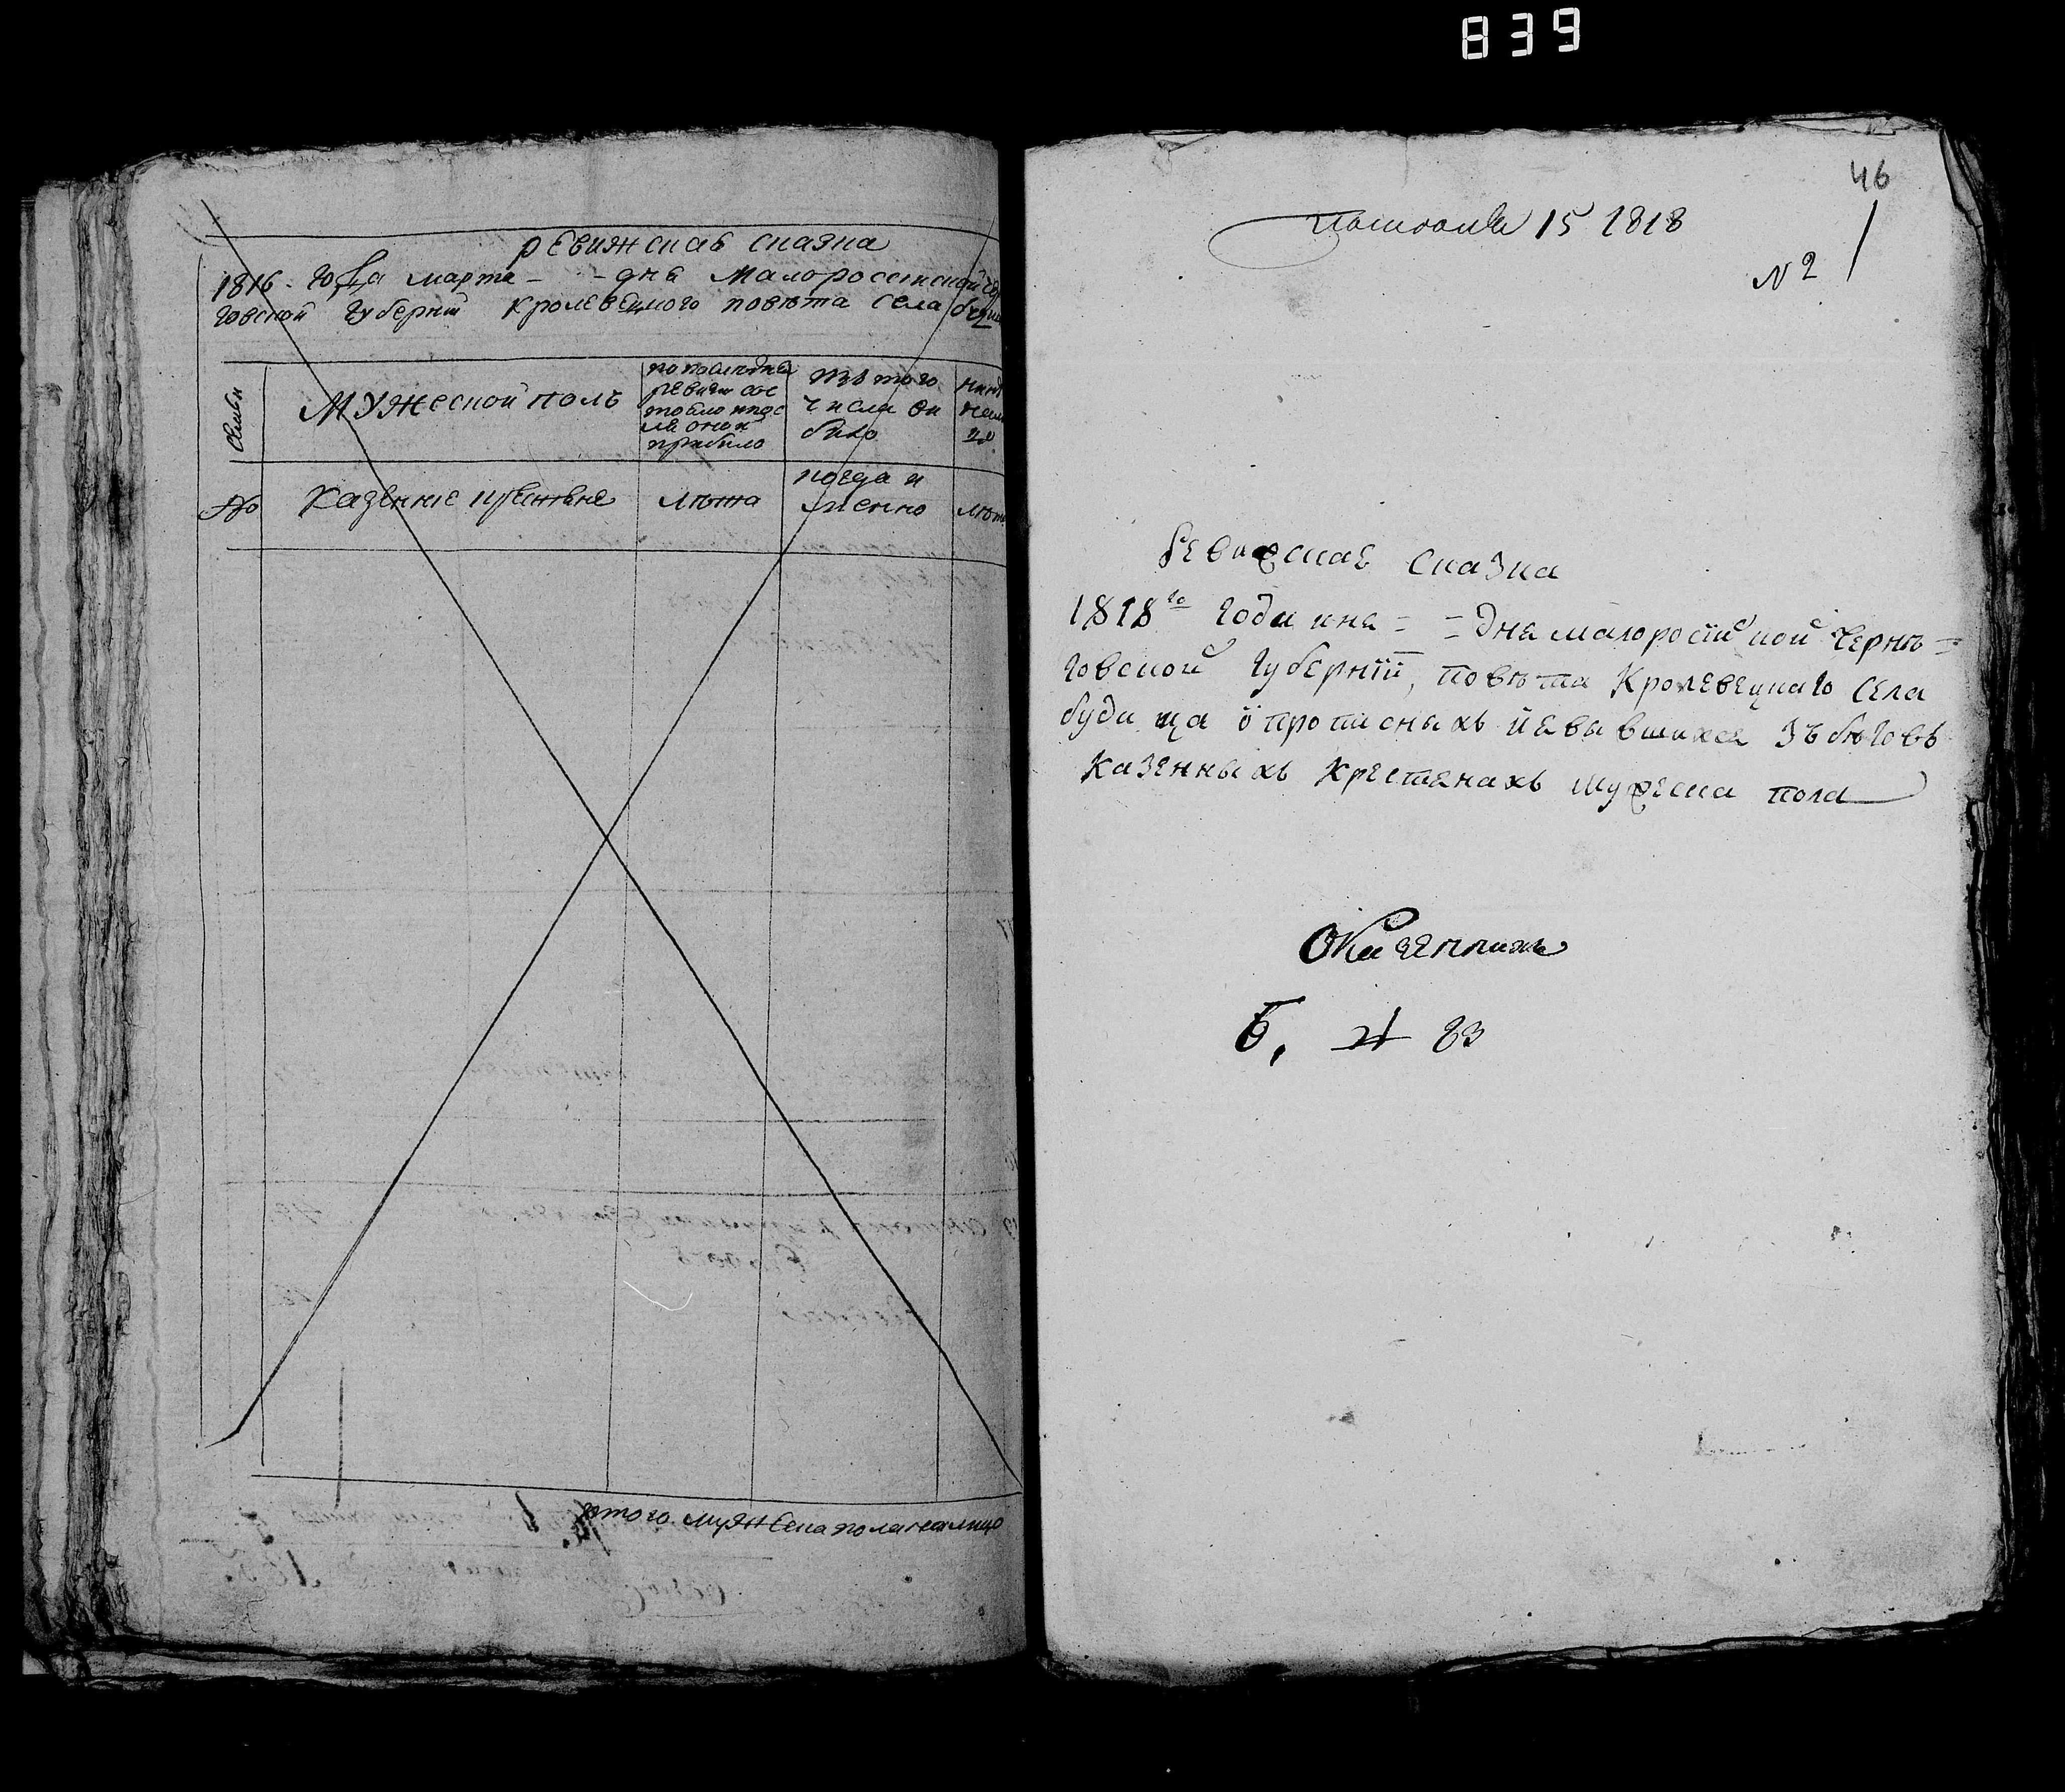 839
ревижская сказка
1816 года марта - - дня Малоросеискои
говской Губернии Кролевецкого повѣта села
Семьи
Мужеской полъ
по последней
ревизіи сос
тояло и пос
ле оной
прибыло
Изъ того
числа вы
было
№
Казенние крестьяне
лѣта
когда и
менно
лѣта
Итого мужеска пола налицо
46
15 1818
№ 2
Ревижская сказка
1818го Года - = дня малоросійской Черни=
говской Губерніи, повѣта Кролевецкаго села
будища о прописныхъ и явившихся зъ бѣговъ
казенныхъ крестянахъ мужеска пола
О казенныхъ
Б. 83